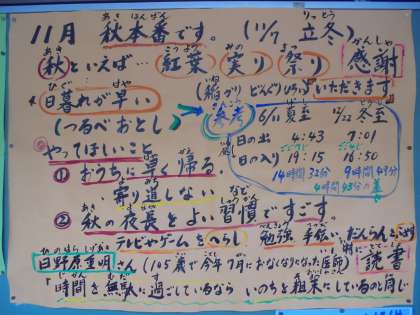 11月 秋本番です。 (11/7 立冬)
秋といえば… 紅葉 実り 祭り 感謝
(稲かり どんぐりひろい) いただきます
日暮れが早い
(つるべおとし)
参考 6/21 夏至 12/22 冬至
日の出 4:43 7:01
日の入り 19:15 16:50
14時間32分 9時間49分
4時間43分の差
やってほしいこと
① おうちに早く帰る。
寄り道しない など
② 秋の夜長をよい習慣ですごす。
テレビやゲームをへらし 勉強 手伝い だんらん
読書
日野原重明さん (105歳で今年7月におなくなりになった医師)
「時間を無駄に過ごしているなら いのちを粗末にしているのと同じ